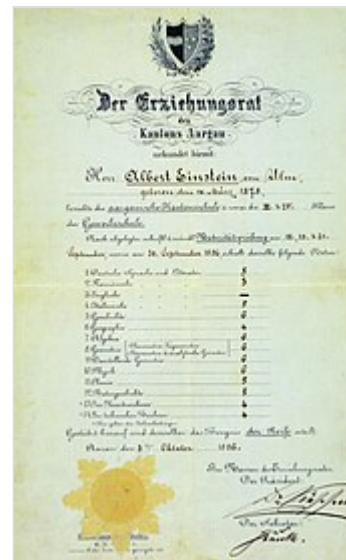 Der Erziehungsrat
des
Kantons Aargau
urkundet hiermit:
Herr Albert Einstein von Ulm,
geboren den 14. März 1879,
besuchte die aargauische Kantonsschule u. zwar die III. & IV. Klasse
der Gewerbeschule.
Nach abgelegter Maturitätsprüfung am 18., 19. & 21.
September, sowie am 30. September 1896, erhielt derselbe folgende Noten:
1. Deutsche Sprache und Litteratur 5
2. Französische 3
3. Englische —
4. Italienische 5
5. Geschichte 6
6. Geographie 4
7. Algebra 6
8. Geometrie 6
9. Darstellende Geometrie 6
10. Physik 6
11. Chemie 5
12. Naturgeschichte 5
13. Im Kunstzeichnen 4
14. Im technischen Zeichnen 4
Gestützt hierauf wird demselben das Zeugnis der Reife erteilt.
Aarau den 3ten Oktober 1896.
Im Namen des Erziehungsrates,
Der Präsident:
Der Sekretär: